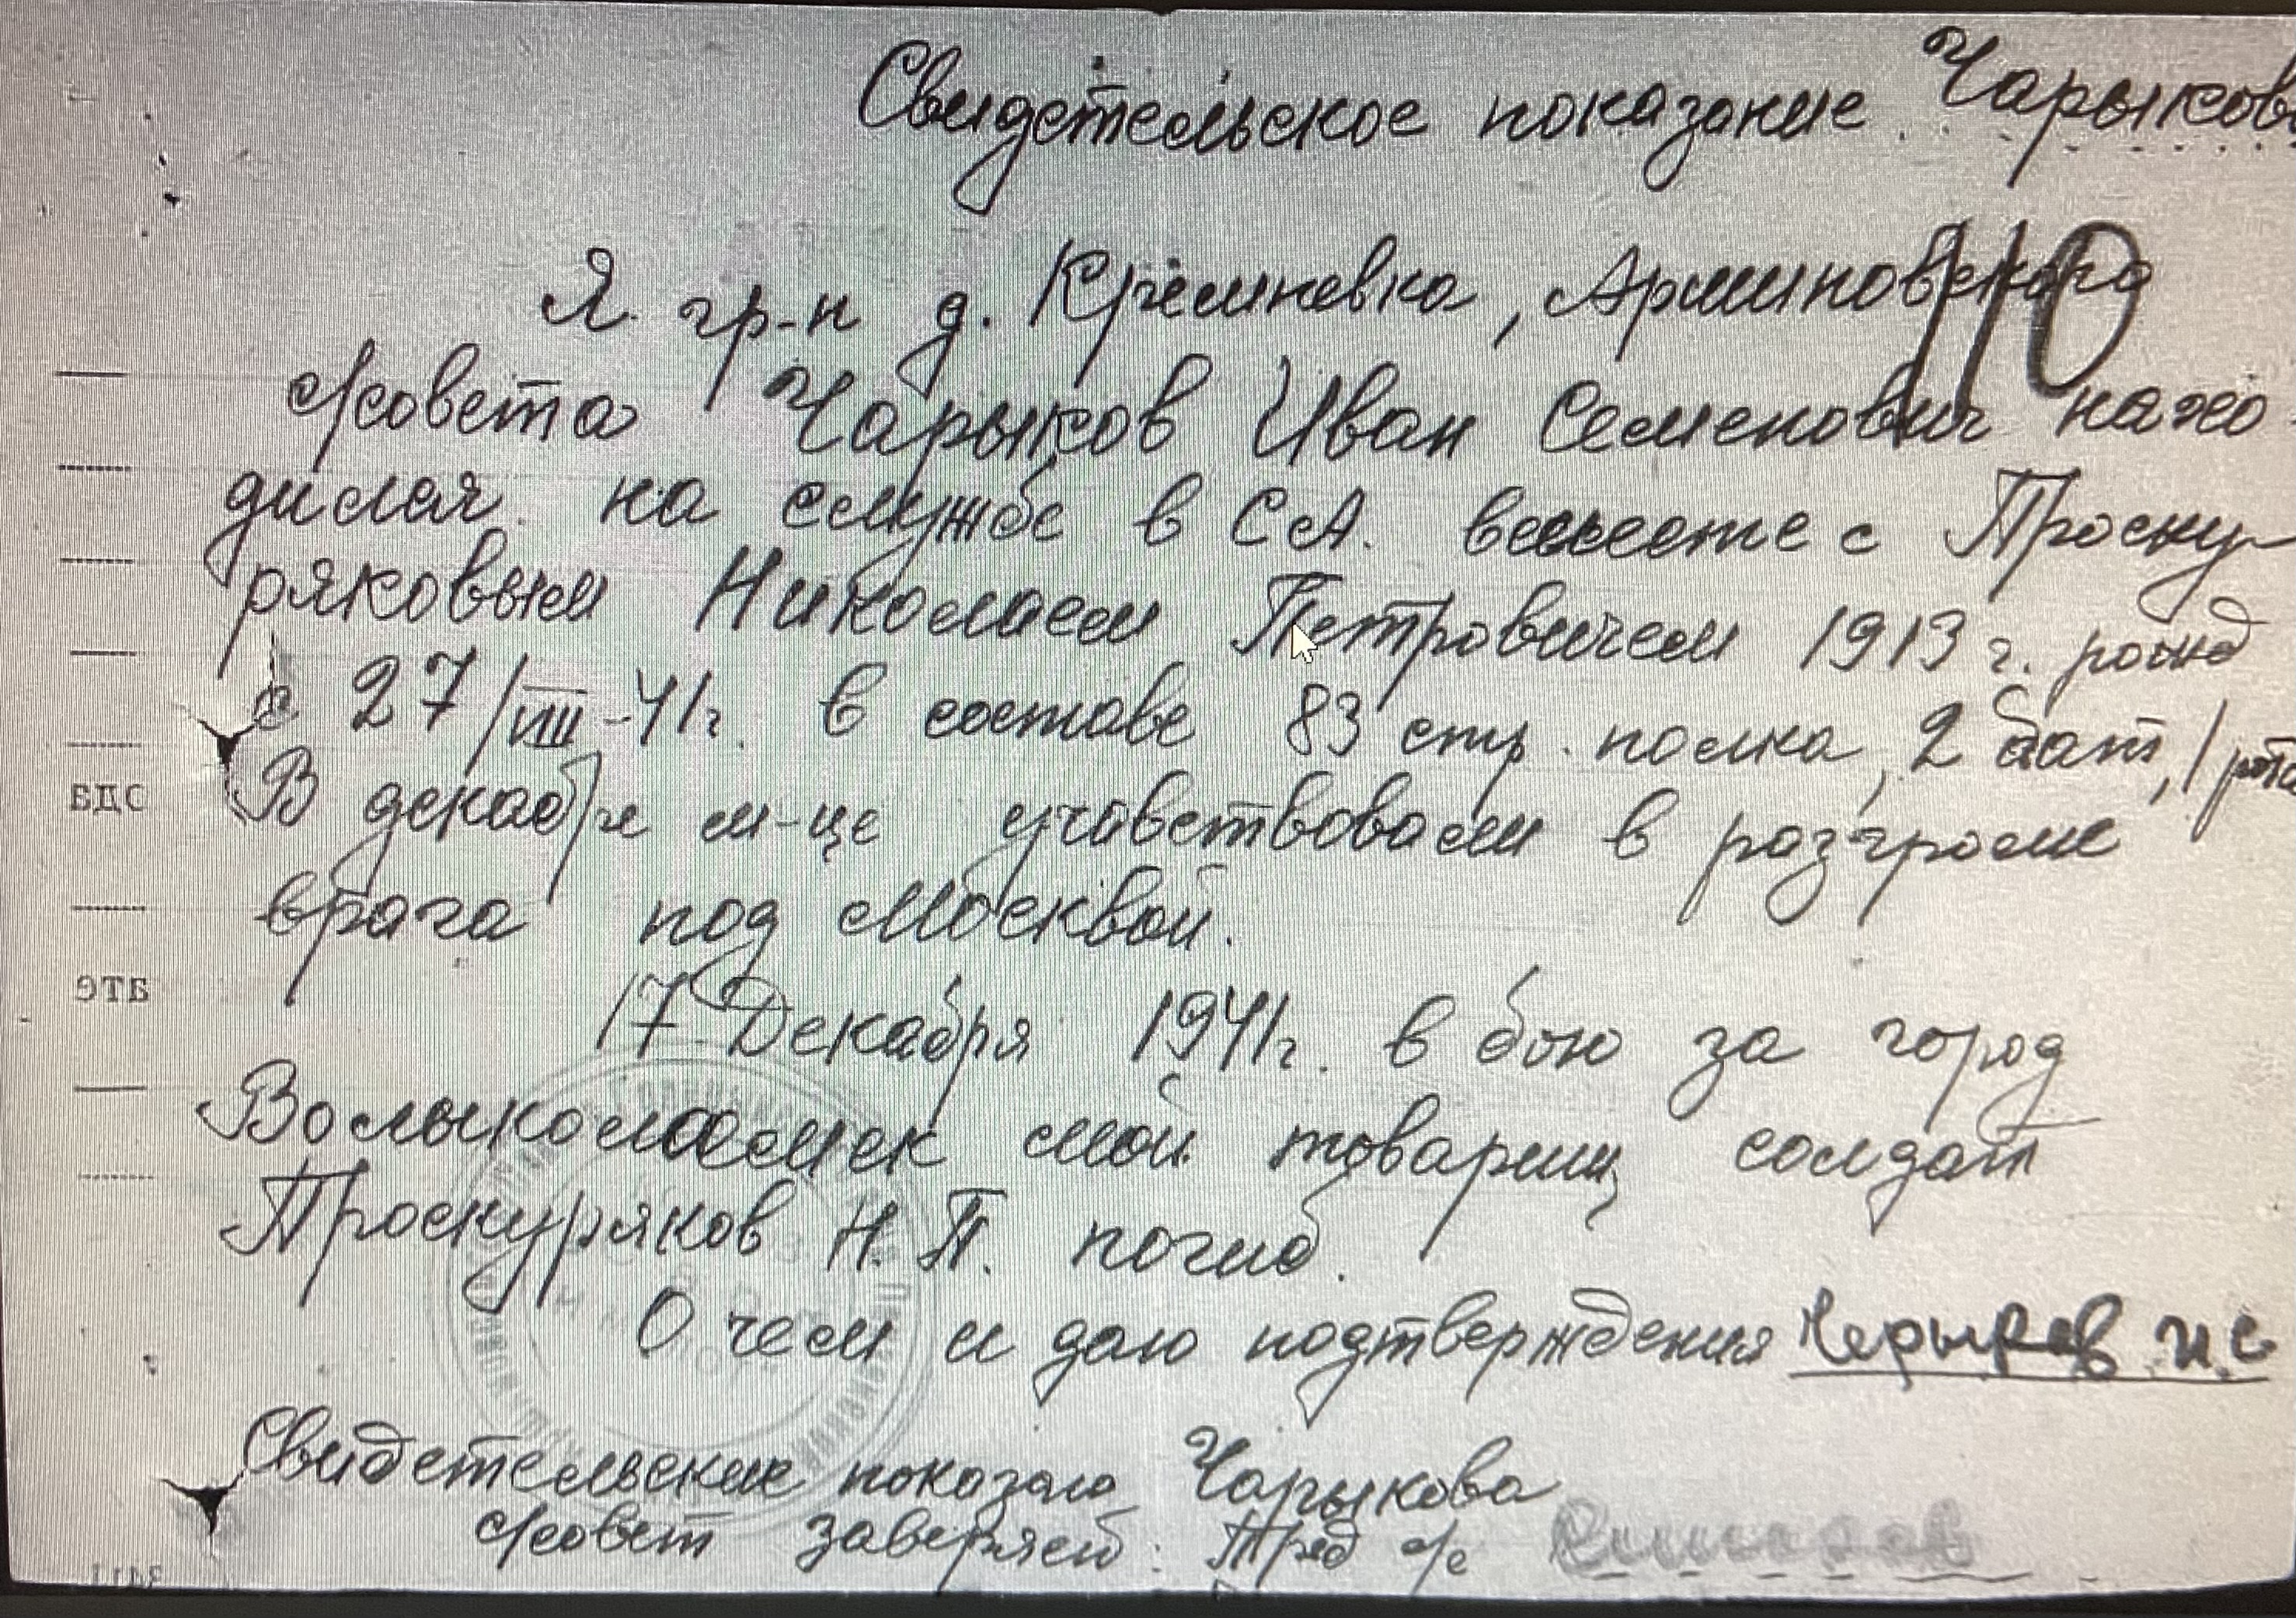 Свидетельское показание Чарыков
110
Я гр-н д. Кремневка, Арминовского
с/совета Чарыков Иван Семенович нахо-
дился на службе в СА. вместе с Проску-
ряковым Николаем Петровичем 1913 г. рожд
с 27/VIII-41г. в составе 83 стр. полка, 2 бат, 1 рота
В декабре м-це учавствовали в разгроме
врага под Москвой.
17 Декабря 1941г. в бою за город
Волыколамск мой товарищ солдат
Проскуряков Н.П. погиб.
О чем и даю подтверждения Чарыков И.С
Свидетельские показаю Чарыкова
с/совет заверяет: Пред с/с
БДС
ЭТБ